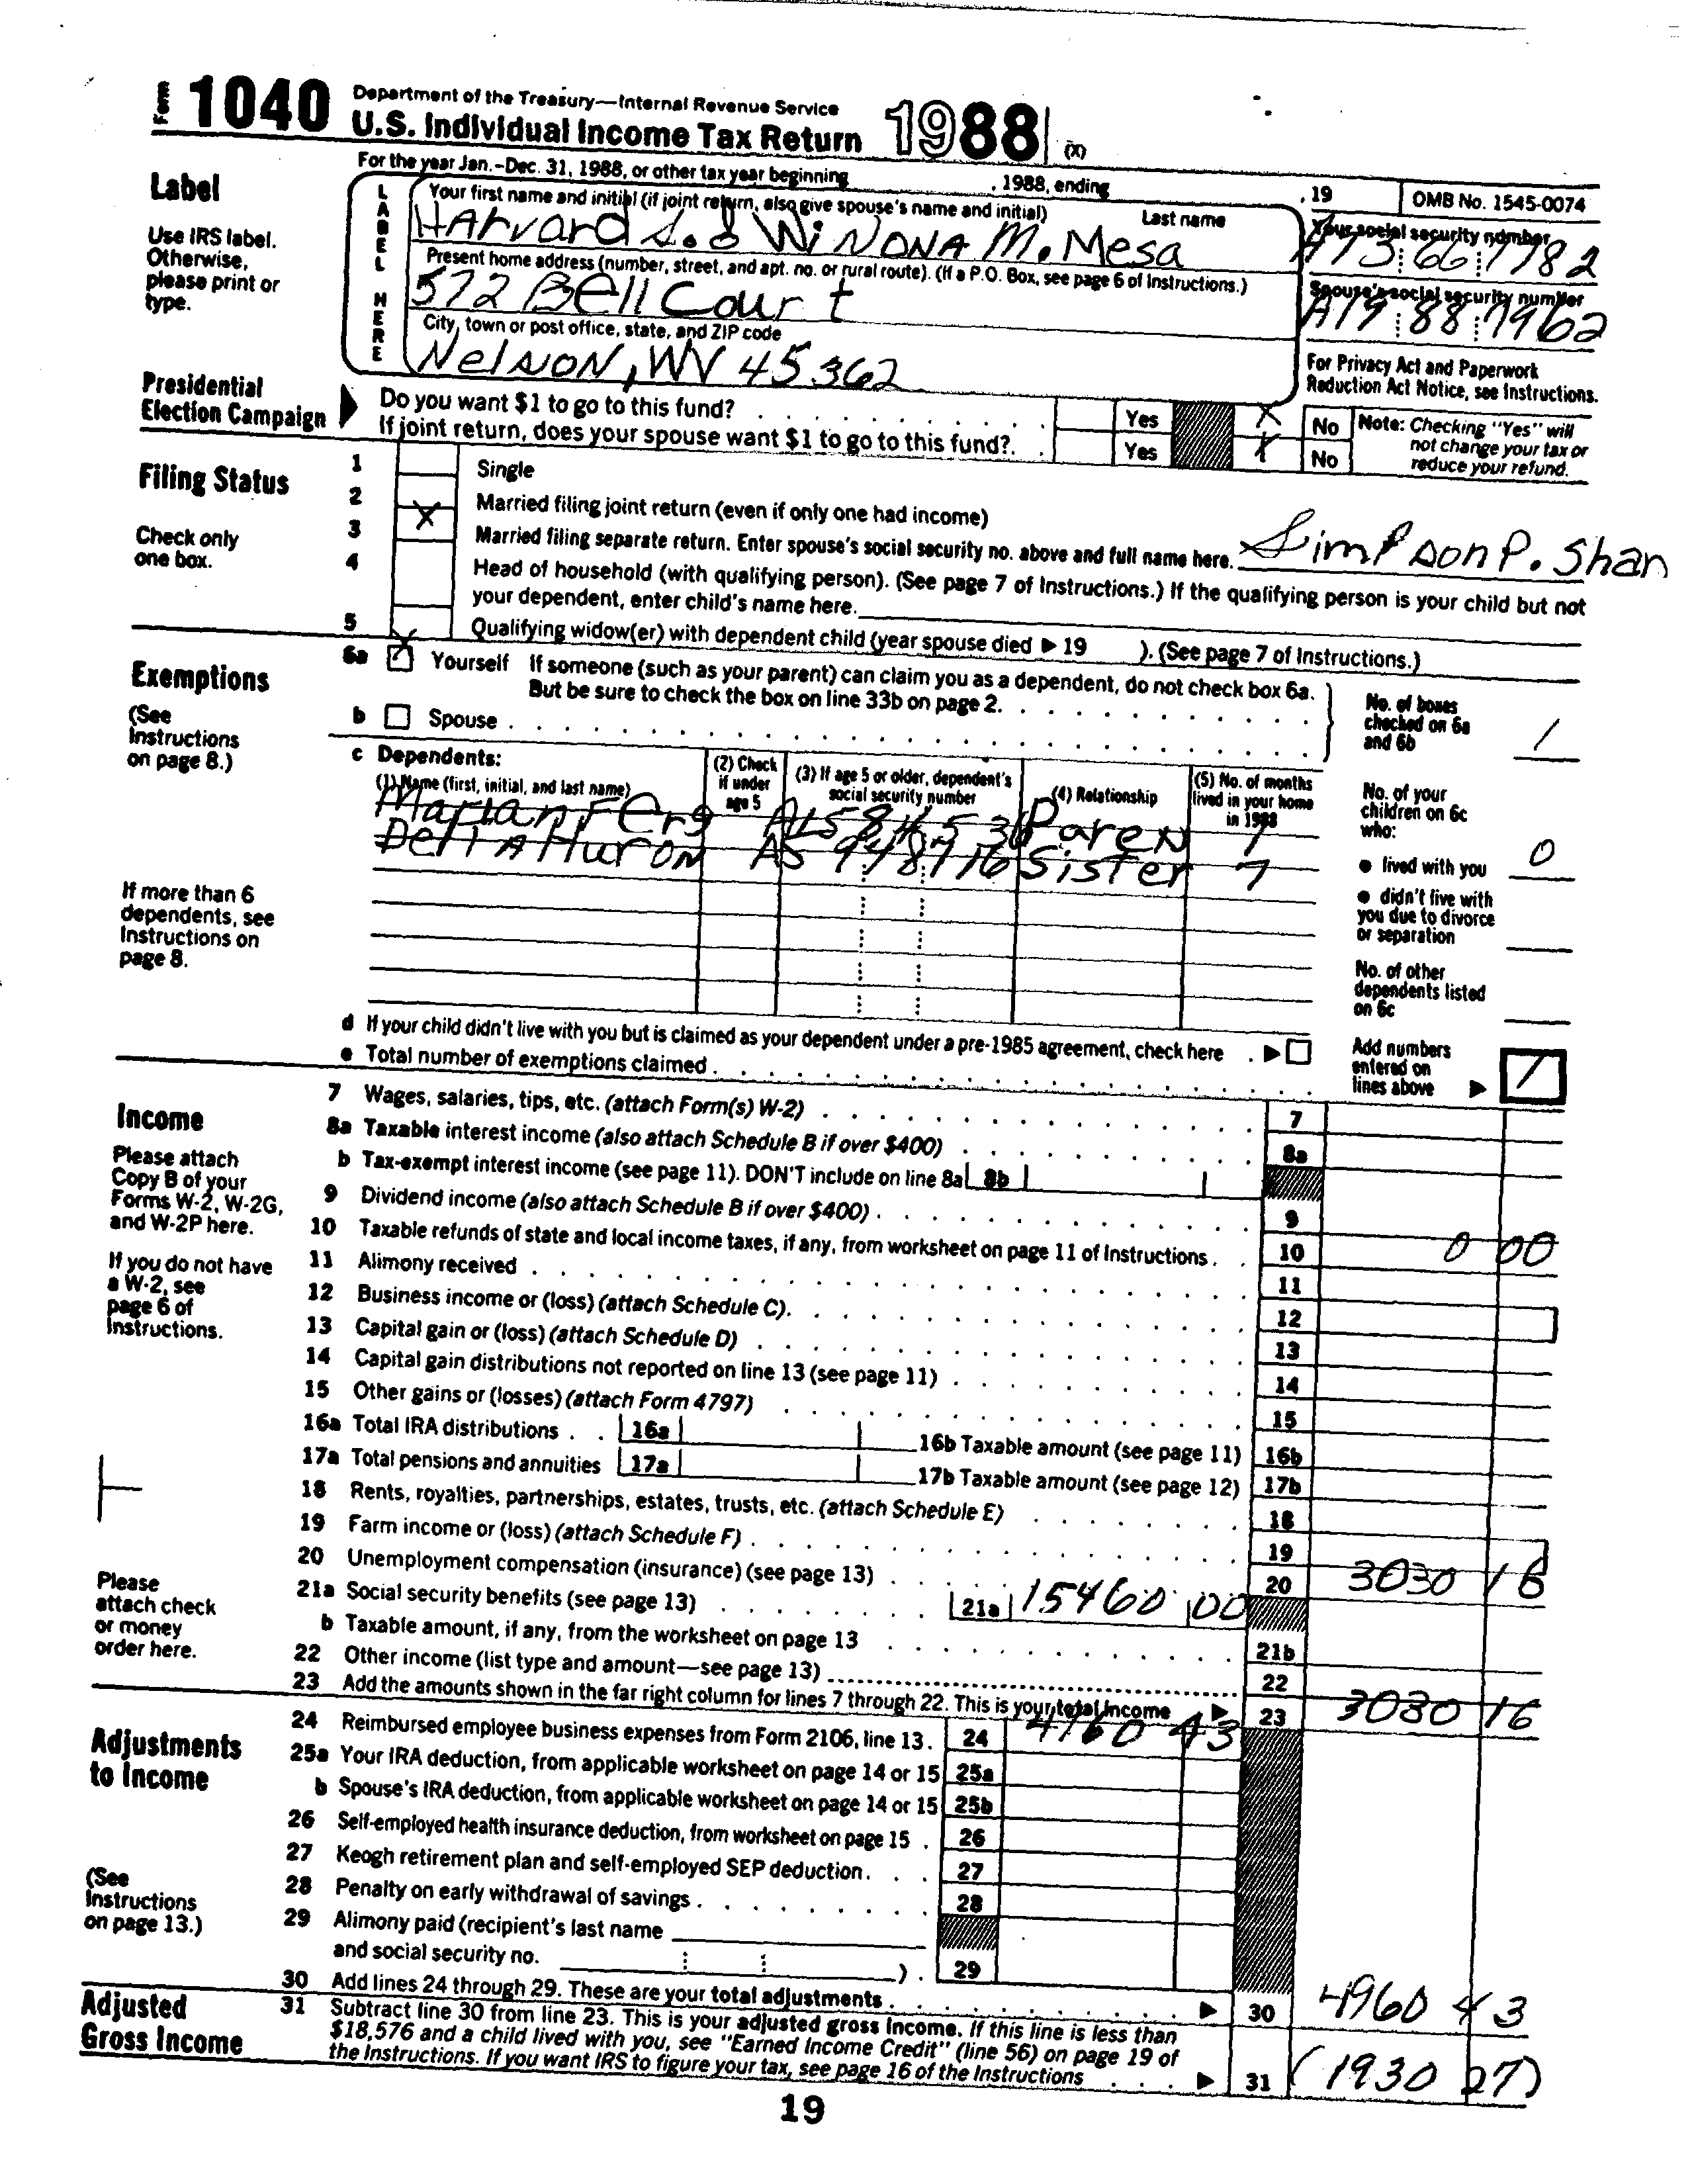 Form 1040 Department of the Treasury—Internal Revenue Service
U.S. Individual Income Tax Return 1988 (X)
For the year Jan.-Dec. 31, 1988, or other tax year beginning , 1988, ending , 19 OMB No. 1545-0074
Label
Use IRS label.
Otherwise,
please print or
type.
LABEL HERE
Your first name and initial (if joint return, also give spouse's name and initial) Last name
HArvard S. & WiNONA M. Mesa
Your social security number
A73 66 7782
Present home address (number, street, and apt. no. or rural route). (If a P.O. Box, see page 6 of Instructions.)
572 Bell Court
Spouse's social security number
A19 88 7962
City, town or post office, state, and ZIP code
NelsoN, WV 45362
For Privacy Act and Paperwork
Reduction Act Notice, see Instructions.
Presidential
Election Campaign
Do you want $1 to go to this fund? Yes X No
If joint return, does your spouse want $1 to go to this fund? Yes X No
Note: Checking "Yes" will
not change your tax or
reduce your refund.
Filing Status
Check only
one box.
1 Single
2 Married filing joint return (even if only one had income)
3 X Married filing separate return. Enter spouse's social security no. above and full name here. Simpson P. Shan
4 Head of household (with qualifying person). (See page 7 of Instructions.) If the qualifying person is your child but not
your dependent, enter child's name here.
5 Qualifying widow(er) with dependent child (year spouse died ▶ 19 ). (See page 7 of Instructions.)
Exemptions
(See
Instructions
on page 8.)
6a X Yourself If someone (such as your parent) can claim you as a dependent, do not check box 6a.
But be sure to check the box on line 33b on page 2.
b Spouse
No. of boxes
checked on 6a
and 6b 1
c Dependents:
(1) Name (first, initial, and last name)
(2) Check
if under
age 5
(3) If age 5 or older, dependent's
social security number
(4) Relationship
(5) No. of months
lived in your home
in 1988
Marian Ferg PareN 7
Della HuroN Sister 7
No. of your
children on 6c
who:
● lived with you 0
● didn't live with
you due to divorce
or separation
No. of other
dependents listed
on 6c
If more than 6
dependents, see
Instructions on
page 8.
d If your child didn't live with you but is claimed as your dependent under a pre-1985 agreement, check here ▶
e Total number of exemptions claimed
Add numbers
entered on
lines above ▶ 1
Income
Please attach
Copy B of your
Forms W-2, W-2G,
and W-2P here.
If you do not have
a W-2, see
page 6 of
Instructions.
Please
attach check
or money
order here.
7 Wages, salaries, tips, etc. (attach Form(s) W-2) 7
8a Taxable interest income (also attach Schedule B if over $400) 8a
b Tax-exempt interest income (see page 11). DON'T include on line 8a 8b
9 Dividend income (also attach Schedule B if over $400) 9
10 Taxable refunds of state and local income taxes, if any, from worksheet on page 11 of Instructions 10 0 00
11 Alimony received 11
12 Business income or (loss) (attach Schedule C) 12
13 Capital gain or (loss) (attach Schedule D) 13
14 Capital gain distributions not reported on line 13 (see page 11) 14
15 Other gains or (losses) (attach Form 4797) 15
16a Total IRA distributions 16a 16b Taxable amount (see page 11) 16b
17a Total pensions and annuities 17a 17b Taxable amount (see page 12) 17b
18 Rents, royalties, partnerships, estates, trusts, etc. (attach Schedule E) 18
19 Farm income or (loss) (attach Schedule F) 19
20 Unemployment compensation (insurance) (see page 13) 20 3030 16
21a Social security benefits (see page 13) 21a 15460 00
b Taxable amount, if any, from the worksheet on page 13 21b
22 Other income (list type and amount—see page 13) 22
23 Add the amounts shown in the far right column for lines 7 through 22. This is your total income ▶ 23 3030 16
Adjustments
to Income
(See
Instructions
on page 13.)
24 Reimbursed employee business expenses from Form 2106, line 13. 24 4960 43
25a Your IRA deduction, from applicable worksheet on page 14 or 15 25a
b Spouse's IRA deduction, from applicable worksheet on page 14 or 15 25b
26 Self-employed health insurance deduction, from worksheet on page 15 26
27 Keogh retirement plan and self-employed SEP deduction 27
28 Penalty on early withdrawal of savings 28
29 Alimony paid (recipient's last name
and social security no. ) 29
30 Add lines 24 through 29. These are your total adjustments ▶ 30 4960 43
Adjusted
Gross Income
31 Subtract line 30 from line 23. This is your adjusted gross income. If this line is less than
$18,576 and a child lived with you, see "Earned Income Credit" (line 56) on page 19 of
the Instructions. If you want IRS to figure your tax, see page 16 of the Instructions ▶ 31 (1930 27)
19